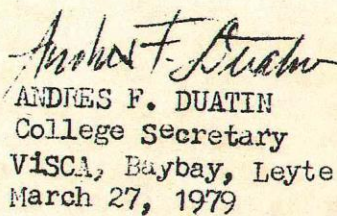 Andres F. Duatin
ANDRES F. DUATIN
College Secretary
ViSCA, Baybay, Leyte
March 27, 1979